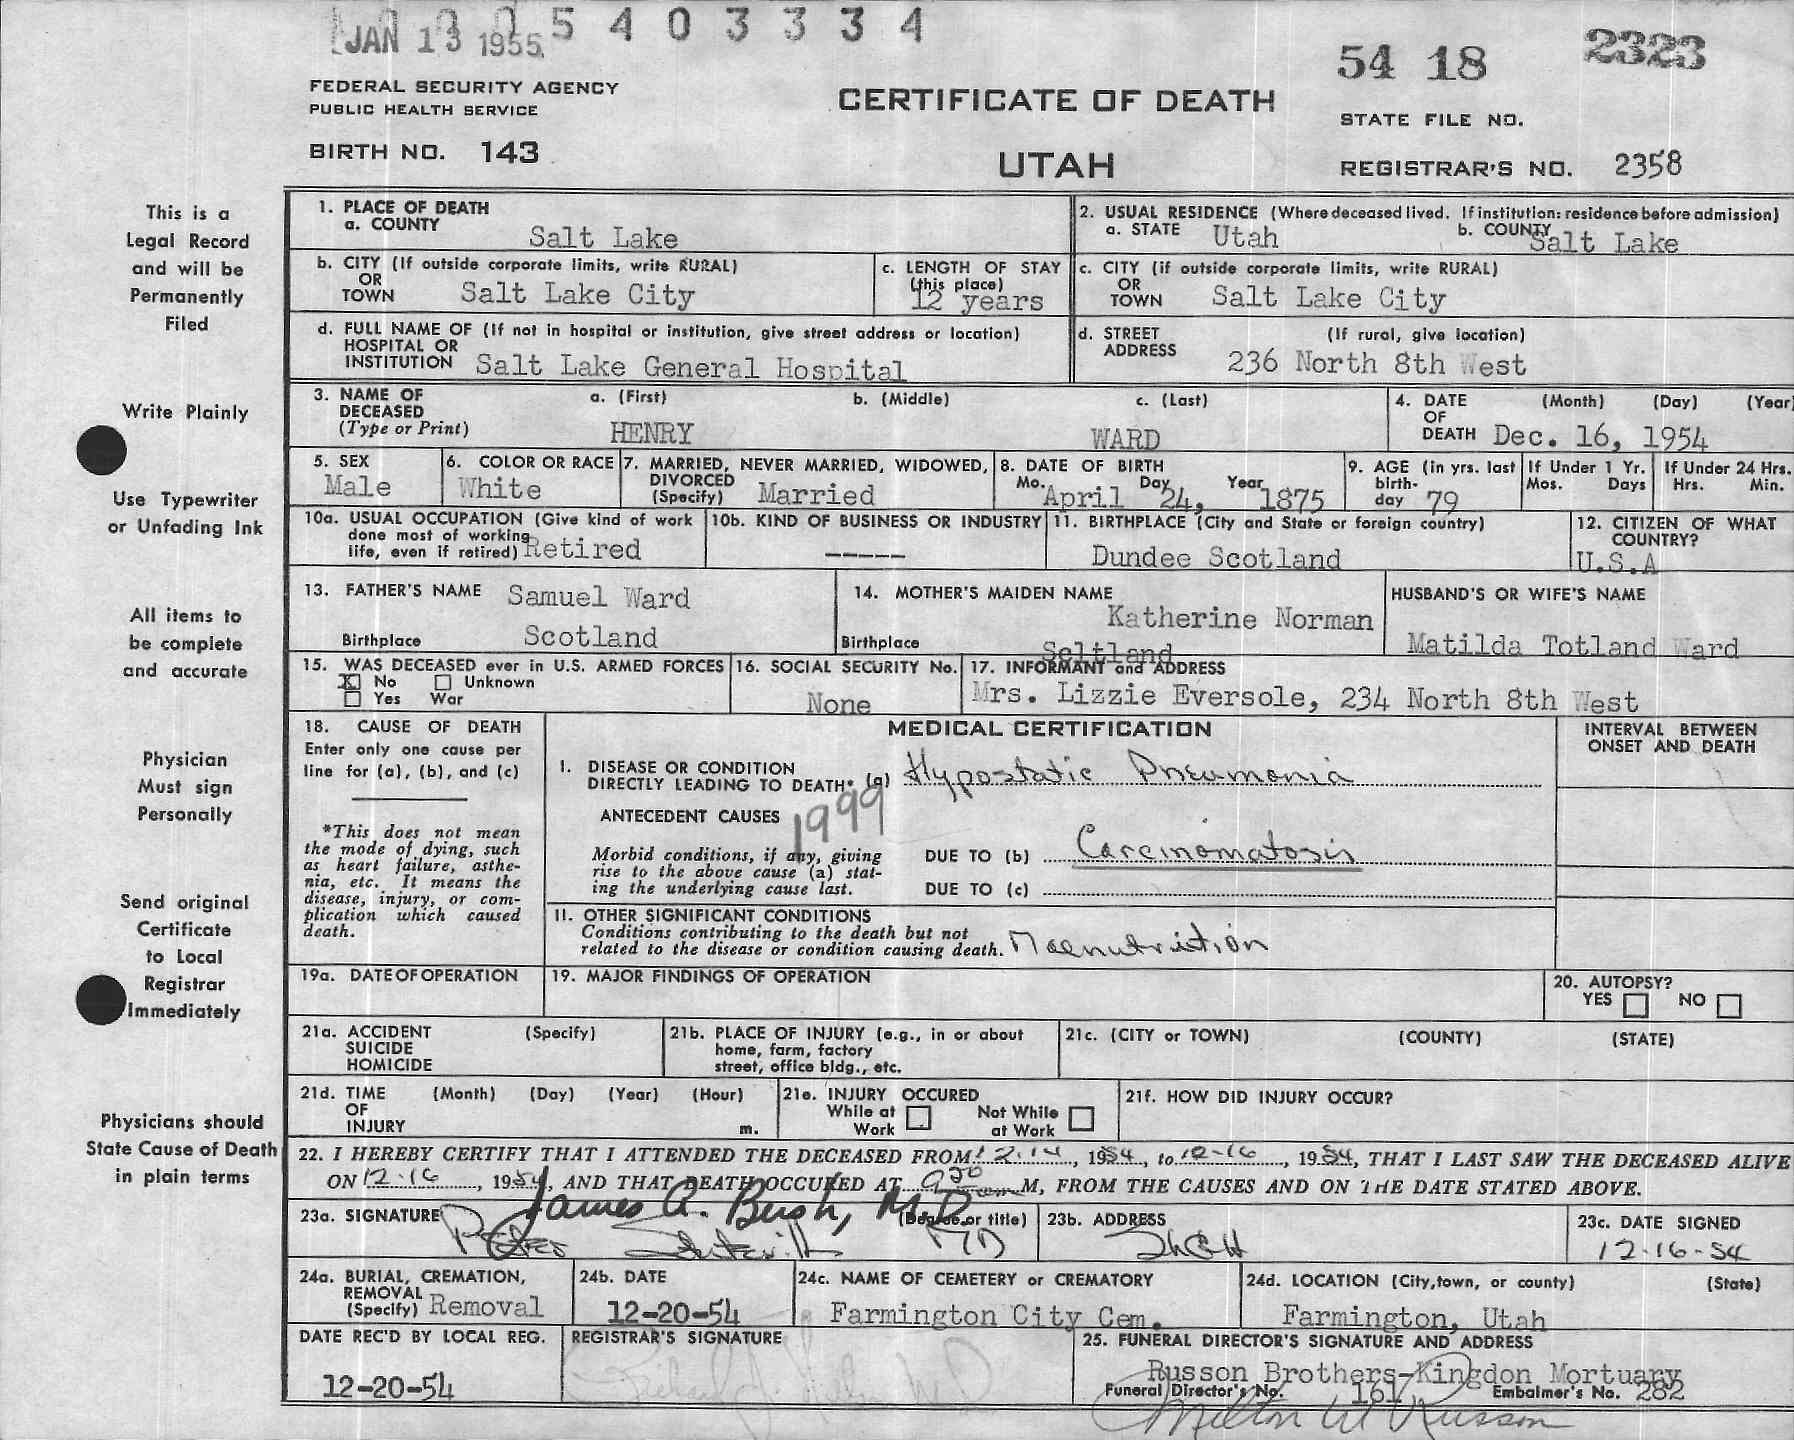 JAN 13 1955 5 4 0 3 3 3 4
54 18 2323
FEDERAL SECURITY AGENCY
PUBLIC HEALTH SERVICE
CERTIFICATE OF DEATH
STATE FILE NO.
BIRTH NO. 143
UTAH
REGISTRAR'S NO. 2358
This is a
Legal Record
and will be
Permanently
Filed
Write Plainly
Use Typewriter
or Unfading Ink
All items to
be complete
and accurate
Physician
Must sign
Personally
Send original
Certificate
to Local
Registrar
Immediately
Physicians should
State Cause of Death
in plain terms
1. PLACE OF DEATH
a. COUNTY Salt Lake
2. USUAL RESIDENCE (Where deceased lived. If institution: residence before admission)
a. STATE Utah b. COUNTY Salt Lake
b. CITY (If outside corporate limits, write RURAL)
OR
TOWN Salt Lake City
c. LENGTH OF STAY
(this place)
12 years
c. CITY (if outside corporate limits, write RURAL)
OR
TOWN Salt Lake City
d. FULL NAME OF (If not in hospital or institution, give street address or location)
HOSPITAL OR
INSTITUTION Salt Lake General Hospital
d. STREET (If rural, give location)
ADDRESS 236 North 8th West
3. NAME OF a. (First) b. (Middle) c. (Last)
DECEASED
(Type or Print) HENRY WARD
4. DATE (Month) (Day) (Year
OF
DEATH Dec. 16, 1954
5. SEX
Male
6. COLOR OR RACE
White
7. MARRIED, NEVER MARRIED, WIDOWED,
DIVORCED
(Specify) Married
8. DATE OF BIRTH
Mo. Day Year
April 24, 1875
9. AGE (in yrs. last
birth-
day 79
If Under 1 Yr.
Mos. Days
If Under 24 Hrs.
Hrs. Min.
10a. USUAL OCCUPATION (Give kind of work
done most of working
life, even if retired) Retired
10b. KIND OF BUSINESS OR INDUSTRY
-----
11. BIRTHPLACE (City and State or foreign country)
Dundee Scotland
12. CITIZEN OF WHAT
COUNTRY?
U.S.A
13. FATHER'S NAME Samuel Ward
Birthplace Scotland
14. MOTHER'S MAIDEN NAME
Katherine Norman
Birthplace
HUSBAND'S OR WIFE'S NAME
Matilda Totland Ward
15. WAS DECEASED ever in U.S. ARMED FORCES
X No Unknown
Yes War
16. SOCIAL SECURITY No.
None
17. INFORMANT and ADDRESS
Mrs. Lizzie Eversole, 234 North 8th West
18. CAUSE OF DEATH
Enter only one cause per
line for (a), (b), and (c)
*This does not mean
the mode of dying, such
as heart failure, asthe-
nia, etc. It means the
disease, injury, or com-
plication which caused
death.
MEDICAL CERTIFICATION
INTERVAL BETWEEN
ONSET AND DEATH
I. DISEASE OR CONDITION
DIRECTLY LEADING TO DEATH* (a) Hypostatic Pneumonia
1999
ANTECEDENT CAUSES
Morbid conditions, if any, giving
rise to the above cause (a) stat-
ing the underlying cause last.
DUE TO (b) Carcinomatosis
DUE TO (c)
II. OTHER SIGNIFICANT CONDITIONS
Conditions contributing to the death but not
related to the disease or condition causing death. Malnutrition
19a. DATE OF OPERATION
19. MAJOR FINDINGS OF OPERATION
20. AUTOPSY?
YES NO
21a. ACCIDENT (Specify)
SUICIDE
HOMICIDE
21b. PLACE OF INJURY (e.g., in or about
home, farm, factory
street, office bldg., etc.
21c. (CITY or TOWN) (COUNTY) (STATE)
21d. TIME (Month) (Day) (Year) (Hour)
OF
INJURY m.
21e. INJURY OCCURED
While at Work Not While at Work
21f. HOW DID INJURY OCCUR?
22. I HEREBY CERTIFY THAT I ATTENDED THE DECEASED FROM 12.14, 1954, to 12-16, 1954, THAT I LAST SAW THE DECEASED ALIVE
ON 12.16, 1954, AND THAT DEATH OCCURED AT 9 20 M, FROM THE CAUSES AND ON THE DATE STATED ABOVE.
James A. Bush, M.D
23a. SIGNATURE (Degree or title) MD
23b. ADDRESS
23c. DATE SIGNED
12-16-54
24a. BURIAL, CREMATION,
REMOVAL
(Specify) Removal
24b. DATE
12-20-54
24c. NAME OF CEMETERY or CREMATORY
Farmington City Cem.
24d. LOCATION (City,town, or county) (State)
Farmington, Utah
DATE REC'D BY LOCAL REG.
12-20-54
REGISTRAR'S SIGNATURE
25. FUNERAL DIRECTOR'S SIGNATURE AND ADDRESS
Russon Brothers-Kingdon Mortuary
Funeral Director's No. 161 Embalmer's No. 282
Milton W Russon